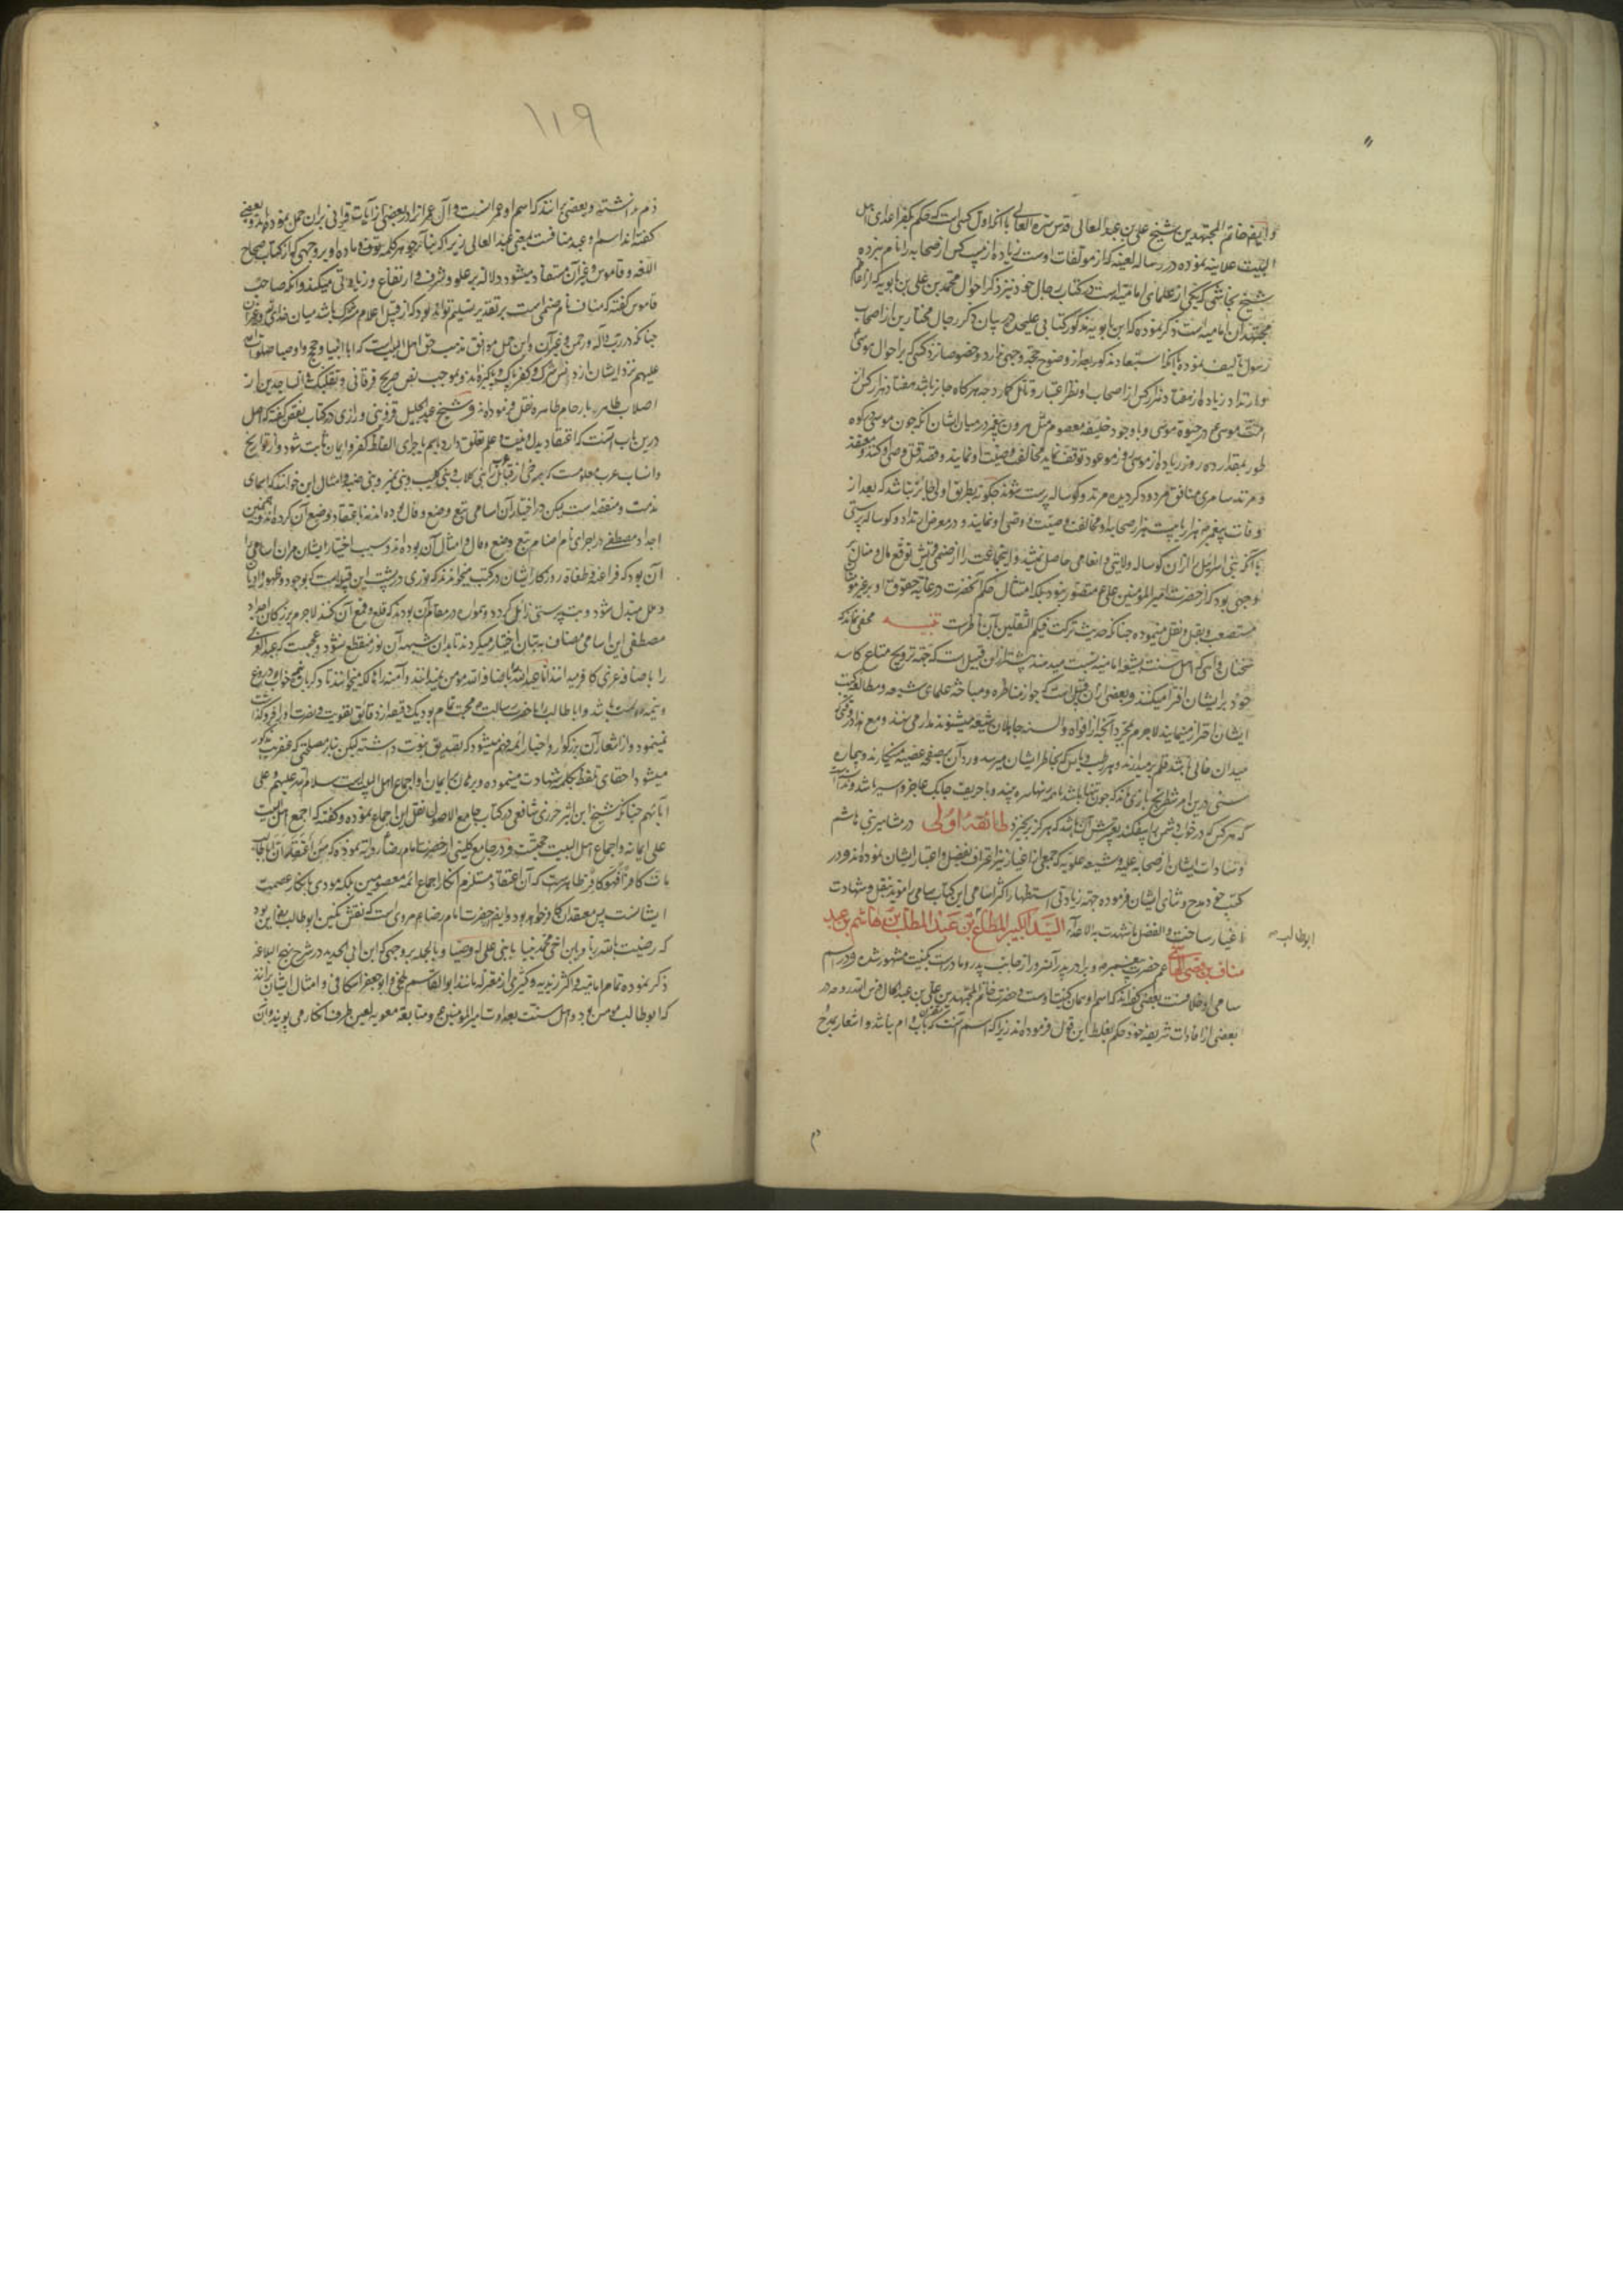 و ایضا خاتم المجتهدین شیخ علی بن عبد العالی قدس سره العالی با آنکه اول کسی است که حکم بکفر اعدای اهل
البیت علانیه نموده در رساله لعنیه که از مولفات اوست زیاده از بیست کس از صحابه را نام نبرده
شیخ نجاشی که یکی از علمای امامیه است در کتاب رجال خود نیز در ذکر احوال محمد بن علی بن بابویه که از اعاظم
مجتهدان امامیه است ذکر نموده که ابن بابویه مذکور کتابی علیحده در بیان ذکر رجال مختارین از اصحاب
رسول تالیف نموده با آنکه استبعاد مذکور بعد از وضوح حجت وجهی ندارد و خصوصا نزد کسی که بر احوال موسی
و ارتداد زیاده از هفتاد هزار کس از اصحاب او نظر اعتبار و تامل کمارد چه هرگاه جایز باشد هفتاد هزار کس از
امت موسی ع در حیوة موسی و با وجود خلیفه معصوم مثل هرون پیغمبر در میان ایشان آنکه چون موسی بکوه
طور بمقدار ده روز زیاده از موسی روز موعود توقف نماید مخالفت وصیت او نمایند و قصد قتل وصی او کنند و معتقد
و مرتد سامری منافق مردود کردیده مرتد و کوساله پرست شوند چکونه بطریق اولی جایز نباشد که بعد از
وفات پیغمبر هزار بیست هزار صحابه او مخالفت وصیت و وصی او نمایند و در معرض ارتداد و کوساله پرستی
با آنکه بنی اسرائیل را از ان کوساله ولایتی و انعامی حاصل نمیشد و اینجماعت را از صنمی قریش توقع مال و منال
او جهی بود که از حضرت امیر المؤمنین علی ع متصور نبود بلکه امتثال حکم آنحضرت در رعایت حقوق
مستضعف و بقل و نقل مینموده چنانکه حدیث ترکت فیکم الثقلین بآن ناطق است تنبیه مخفی نماند که
سخنان واهی که اهل سنت بشیعه امامیه نسبت میدهند بیشتر ازین قبیل است که جهة ترویج متاع کاسد
خود بر ایشان افترا میکنند و بعضی از ان قبیل است که چون از مناظره و مباحثه علمای شیعه و مطالعه کتب
ایشان احتراز مینمایند لاجرم بمجرد آنچه از افواه و السنه جاهلان شیعه میشنوند مدار می نهند و مع هذا
میدان خالی باشد قلم بر میدارند و هر رطب و یابس که بخاطر ایشان میرسد در آن صحیفه میکارند و بیچاره
سنی درین امر شطرنج بازی ماند که چون تنها باشد مهره نهاده چیند و با حریف چابک عاجز و اسیر باشد
که هر کس که در خواب دشمن را بیفکند تعبیرش آن باشد که هرکز برنخیزد طائفهٔ اولی در مشاهیر بنی هاشم
و سادات ایشان از صحابه علیه و شیعه علویه که جمعی از اغیار نیز اعتراف بفضل و اعتبار ایشان نموده اند و در
کتب خود مدح و ثنای ایشان فرموده جهة زیادتی استظهار اکثر اسامی این کتاب سامی را موید بنقل و شهادت
اغیار ساخت و الفضل ما شهدت به الاعداء السید الکبیر المطاع بن عبد المطلب بن هاشم بن عبد
ابوطالب
مناف بن قصی القرشی عم حضرت پیغمبر و برادر پدر آنسرور از جانب پدر و مادر است بکنیت مشهور شده و در اسم
سامی او خلافست بعضی گفته اند که اسم او همان کنیت اوست و حضرت خاتم المجتهدین علی بن عبد العالی قدس الله روحه در
بعضی از افادات شریفه خود حکم بغلط این قول فرموده اند زیرا که اسم آنست که باب و ام نباشد و اشعار بمدح
۱۱۹
ذم نداشته و بعضی برانند که اسم او عمرانست و آل عمران را در بعضی از آیات قرآنی بران حمل نموده اند و بعضی
کفته اند اسم او عبد منافست بمعنی عبد العالی زیرا که بنا بر جوهر کلمه نوف و ماده او بر وجهی که از کتاب صحاح
اللغه و قاموس و غیر آن مستفاد میشود دلاله بر علو و شرف و ارتفاع و زیادتی میکند و آنکه صاحب
قاموس کفته که مناف نام صنمی است بر تقدیر تسلیم تواند بود که از قبیل اعلام مشترک باشد میان خدای
چنانکه در رب و اله و رحمن و غیر آن و این حمل موافق مذهب حق اهل البیت است که ابا انبیا و حجج و اوصیا صلوات الله
علیهم نزد ایشان از دنس شرک و کفر پاک و پاکیزه اند و بموجب نص صریح فرقانی و تقلبک فی الساجدین از
اصلاب طاهره بارحام طاهره نقل فرموده اند و شیخ عبد الجلیل قزوینی رازی در کتاب نقض کفته که اصل
درین باب آنست که اعتقاد بدل و نیت و علم تعلق دارد باسم باجرای الفاظ کفر و ایمان ثابت شود و از تواریخ
و انساب عرب معلومست که برخی از قبایل را بنی کلاب و بنی کلیب و بنی نمیر و بنی ضبه و امثال این خوانند که اسمای
مذمت و منقصه است لیکن در اختیار آن اسامی تتبع وضع و فال بوده اند نه باعتقاد وضع آن کرده اند و همچنین
اجداد مصطفی در اجرای نام اصنام تتبع وضع و فال و امثال آن بوده اند و سبب اختیار ایشان مر ان اسامی را
آن بود که فراعنه و طغاة روزکار ایشان در کتب میخواندند که نوری در پشت این قبیله است که بوجود و ظهور او ادیان
و ملل مبدل شود و بت پرستی زایل کردد و همواره در مقام آن بودند که قلع و قمع آن کنند لاجرم بزرکان اجداد
مصطفی این اسامی مضاف به بتان اختیار میکردند تا بدان شبهه آن نور منقطع نشود و عجبست که عبد العزی
را باضافه عزی کافر میدانند اما عبد الله را باضافه الله مومن نمیدانند و آمنه را
و تیمه درست باشد و ابا طالب را با حضرت رسالت ص محبت تمام بود یک دقیقه از دقایق تقویت و نصرت او را فرو کذاشت
نمینمود و از اشعار آن بزرکوار و اخبار ائمه فهم میشود که تصدیق نبوت داشته لیکن بنا بر مصلحتی که عنقریب مذکور
میشود اخفای تلفظ بکلمه شهادت مینموده و بر ایمان او اجماع اهل البیت است سلام الله علیهم و علی
آبائهم چنانکه شیخ ابن اثیر جزری شافعی در کتاب جامع الاصول نقل این اجماع نموده و کفته که اجمع اهل البیت
علی ایمانه و اجماع اهل البیت حجت و در جامع کلینی از حضرت امام رضا ع روایه نموده که من اعتقد ان ابا طالب
مات کافرا فهو کافر ظاهرست که آن اعتقاد مستلزم انکار اجماع ائمه معصومین بلکه مودی بانکار عصمت
ایشانست پس معتقد آن کافر خواهد بود و ایضا حضرت امام رضا ع مروی است که نقش نکین ابوطالب این بود
که رضیت بالله ربا و بابن اخی محمد نبیا و بابنی علی له وصیا و بالجمله بر وجهی که ابن ابی الحدید در شرح نهج البلاغه
ذکر نموده تمام امامیه و اکثر زیدیه و کثیری از معتزله مانند ابو القاسم بلخی و ابو جعفر اسکافی و امثال ایشان برانند
که ابوطالب مومن بود و اهل سنت بعداوت امیر المؤمنین ع و متابعة معویه لعین طرف انکار می پویند و آن